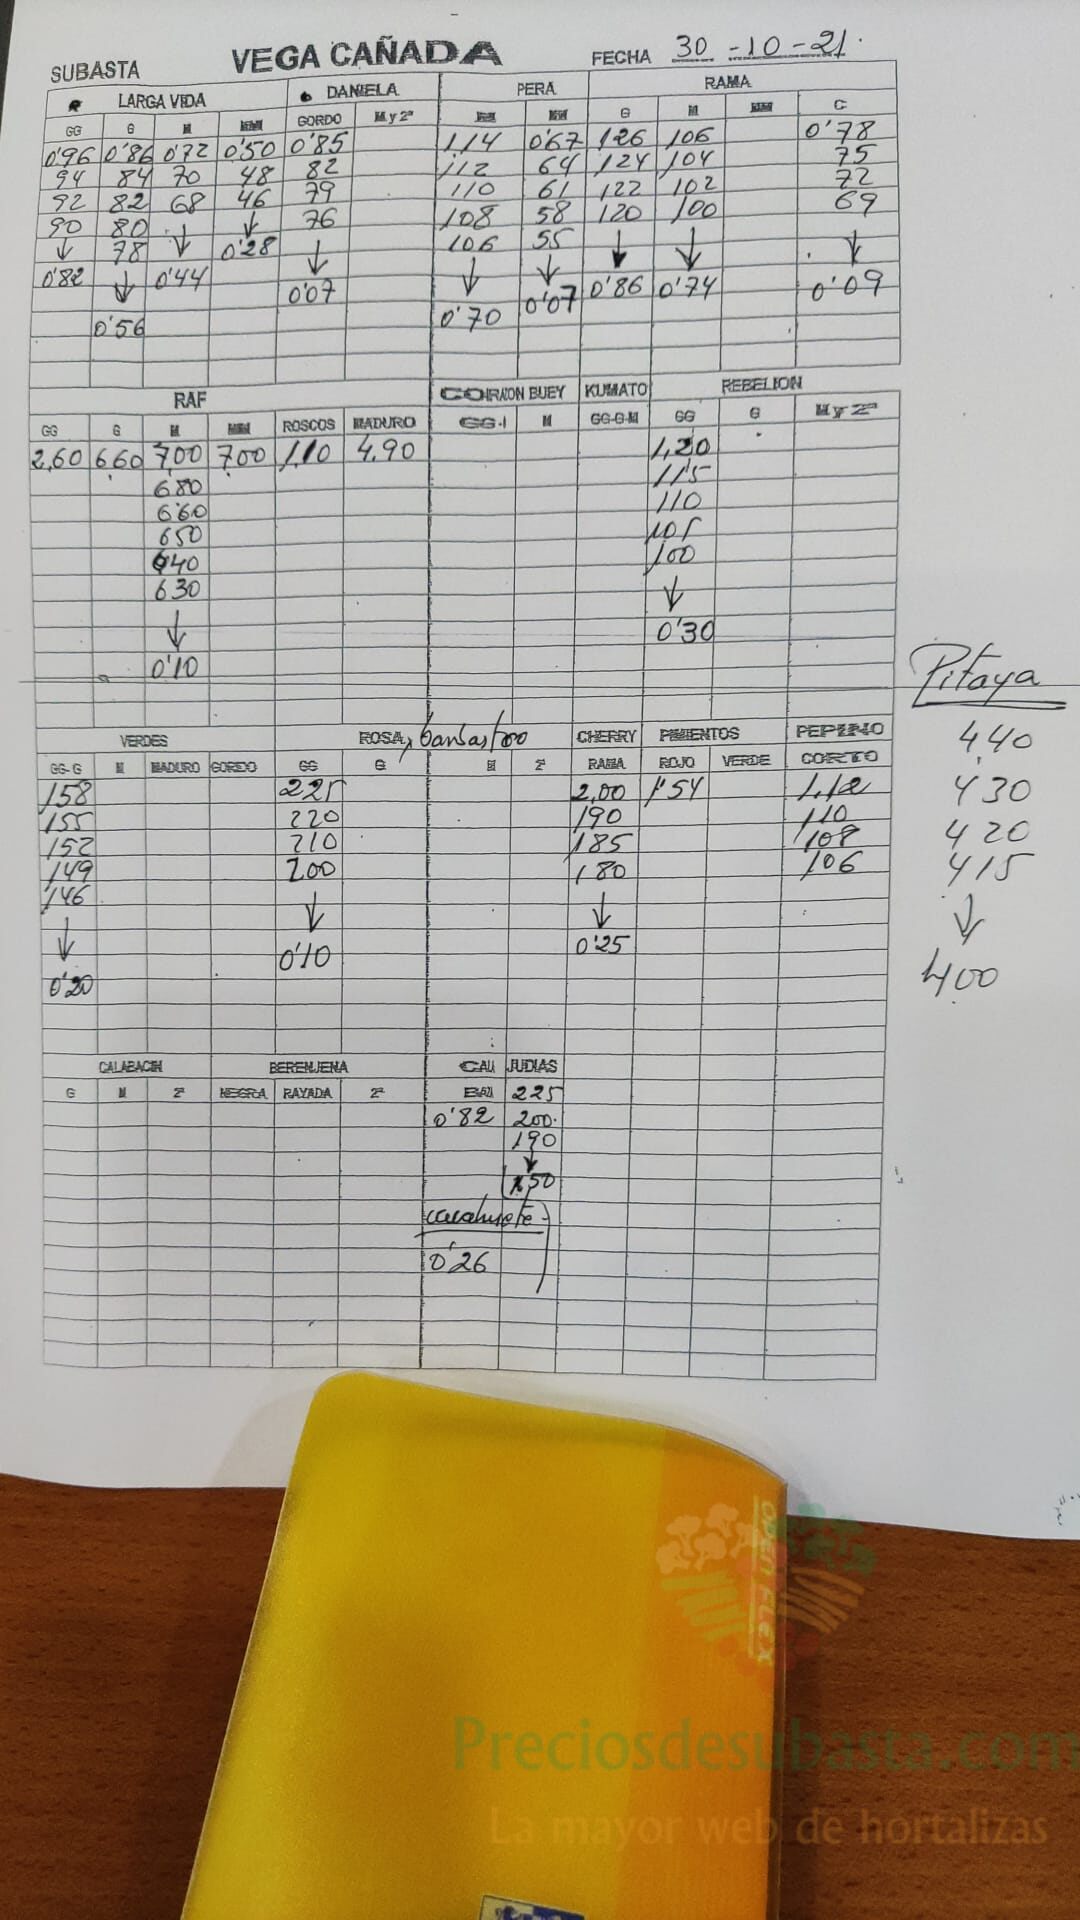 SUBASTA VEGA CAÑADA FECHA 30-10-21.
LARGA VIDA DANIELA PERA RAMA
GG G M MM GORDO M y 2ª M MM G M MM C
0'96 0'86 0'72 0'50 0'85 1,14 0'67 126 106 0'78
94 84 70 48 82 112 64 124 104 75
92 82 68 46 79 110 61 122 102 72
90 80 ↓ ↓ 76 108 58 120 100 69
↓ 78 ↓ 0'28 ↓ 106 55 ↓ ↓ ↓
0'82 ↓ 0'44 0'07 ↓ ↓ 0'86 0'74 0'09
0'56 0'70 0'07
RAF CORAZON BUEY KUMATO REBELION
GG G M MM ROSCOS MADURO GG-1 M GG-G-M GG G M y 2ª
2,60 6.60 7,00 7.00 1.10 4.90 1,20
680 115
660 110
650 105
640 100
630 ↓
↓ 0'30
0'10
Pitaya
4,40
430
420
415
↓
4,00
VERDES ROSA, CHERRY PIMIENTOS PEPINO
GG-G M MADURO GORDO GG G M 2ª RAMA ROJO VERDE CORTO
158 225 2,00 1'54 1,12
155 220 190 110
152 210 185 108
149 200 180 106
146 ↓ ↓
↓ 0'10 0'25
0'20
CALABACIN BERENJENA CALA JUDIAS
G M 2ª NEGRA RAYADA 2ª BAZA 225
0'82 200.
190
↓
1,50
cacahuete
0'26
OPEN FLEX
Preciosdesubasta.com
La mayor web de hortalizas